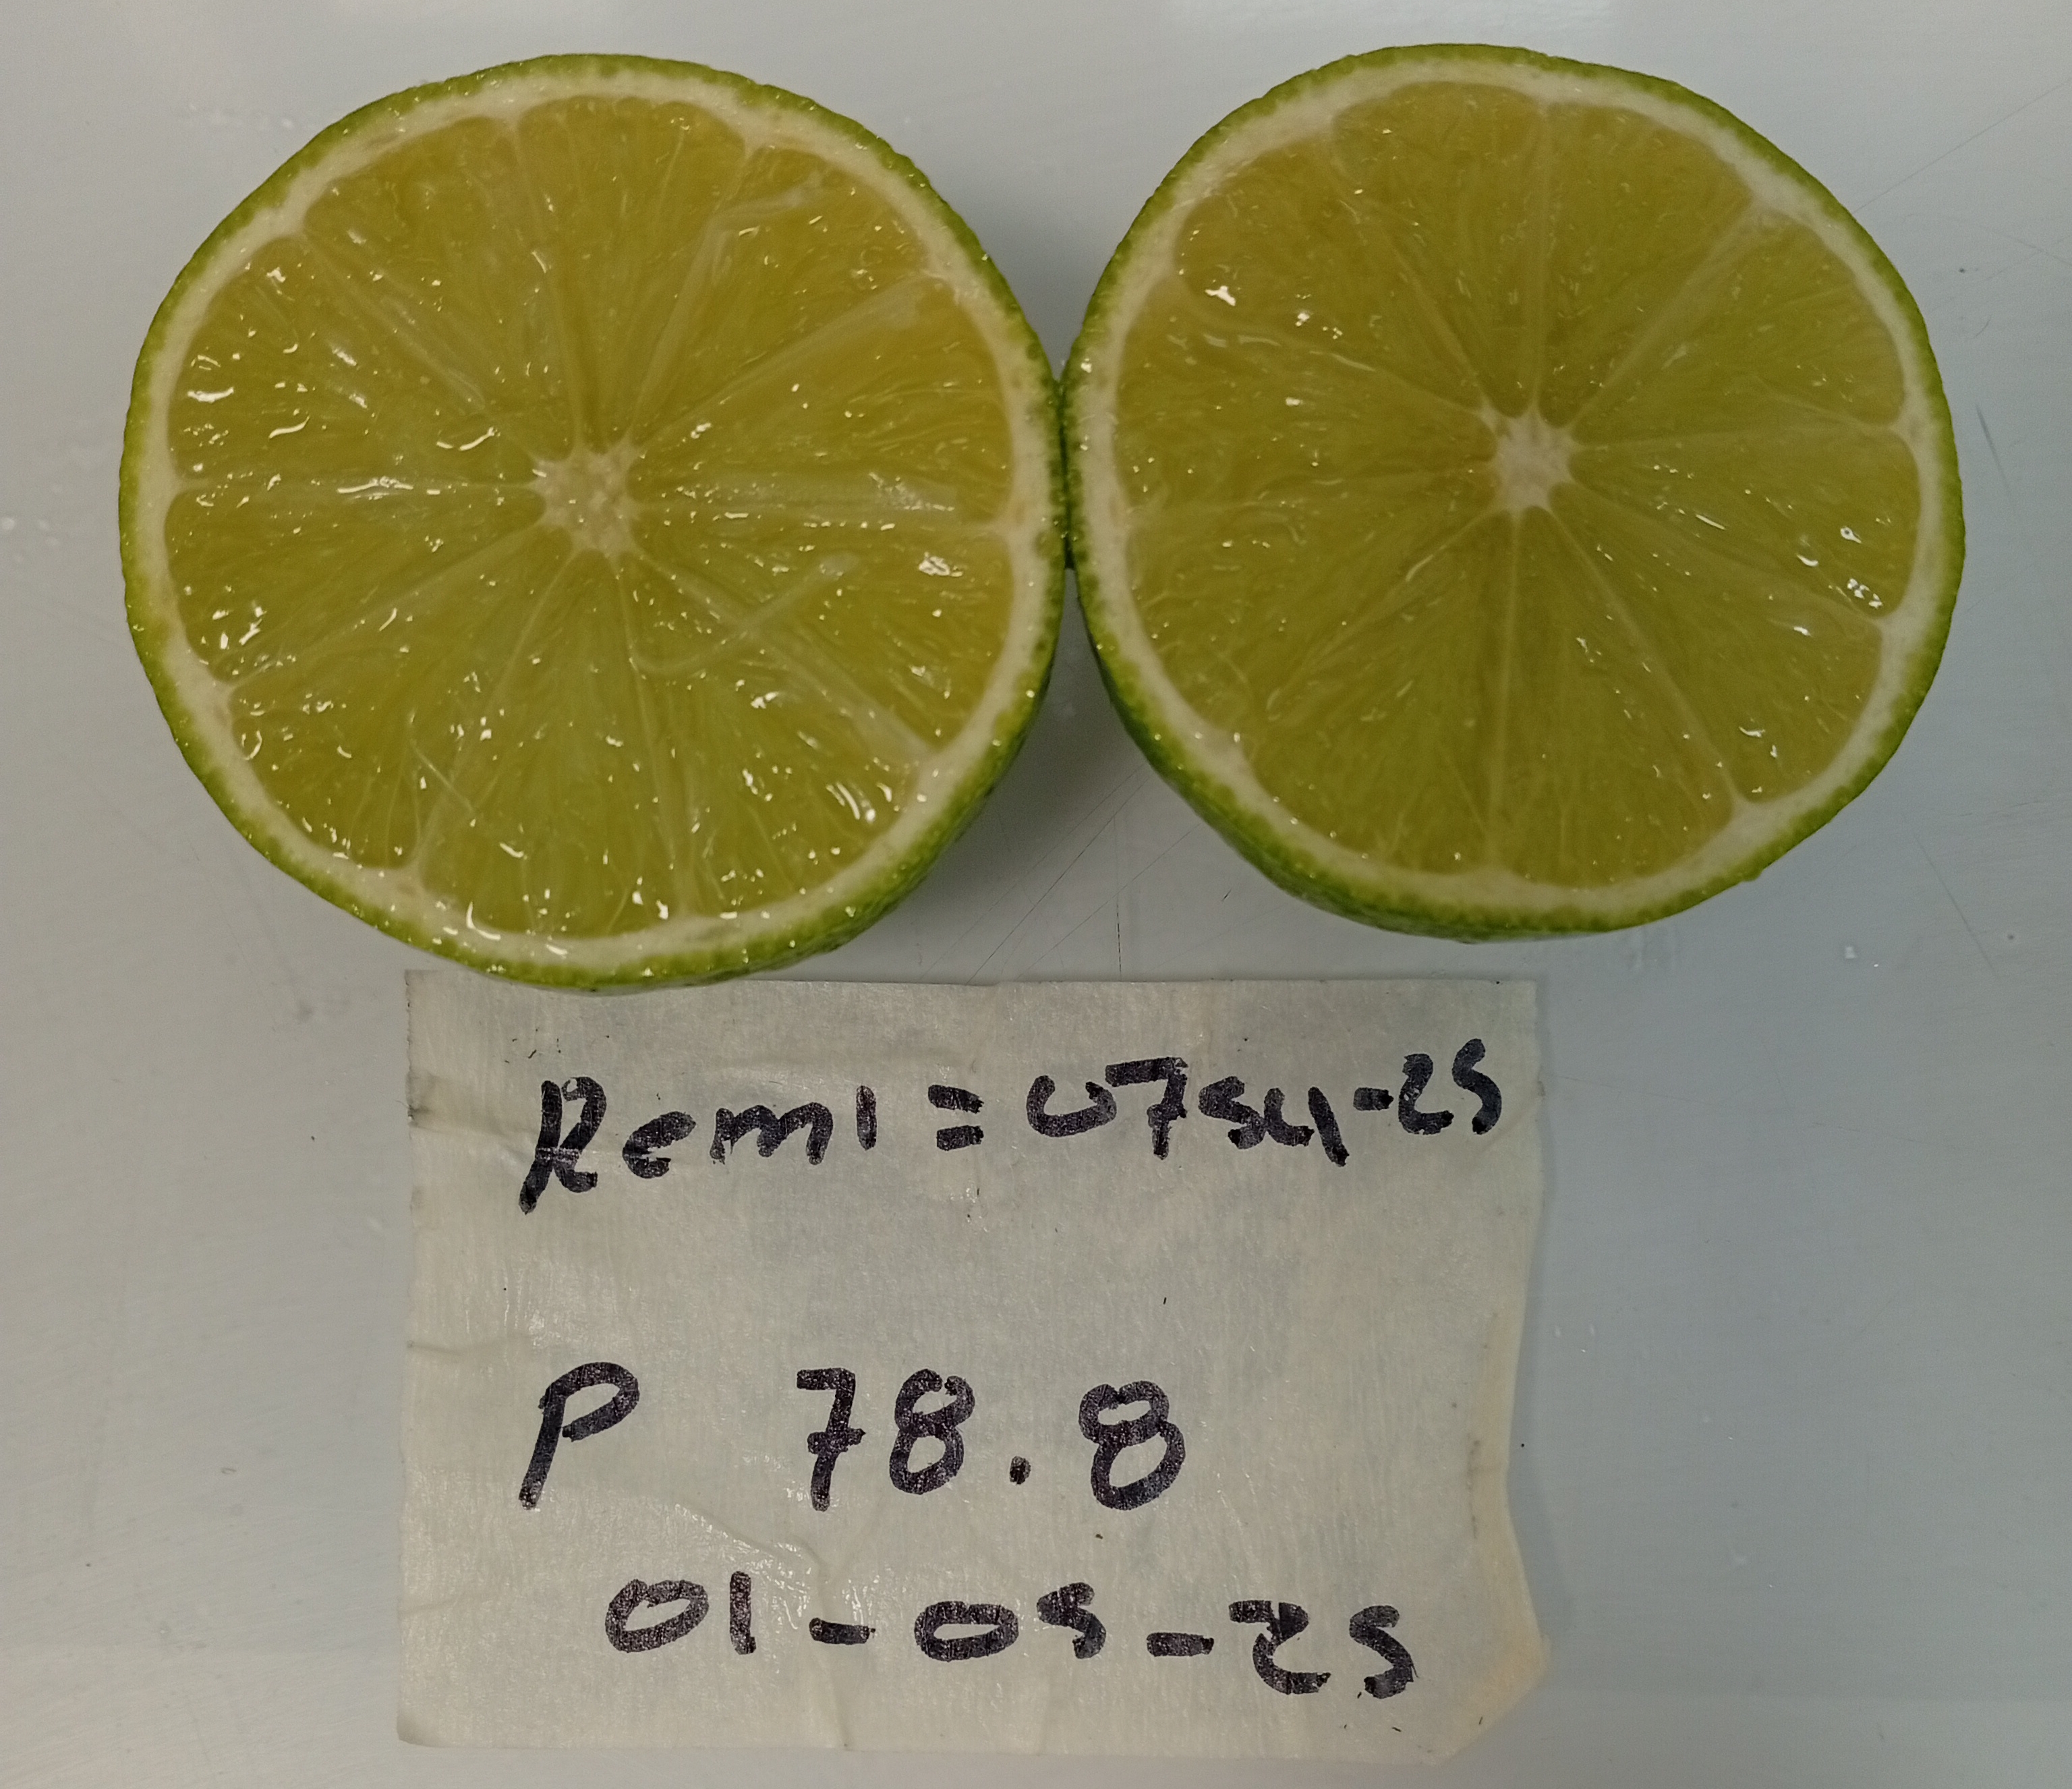 Remi = 0754-25
P 78.8
01-05-25